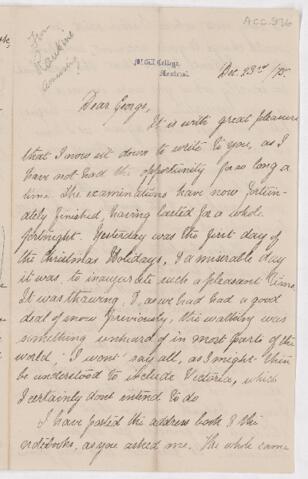 ACC.936
Rankine
amusing
McGill College,
Montreal
Dec. 23rd /75.
Dear George,
It is with great pleasure
that I now sit down to write to you, as I
have not had the opportunity for so long a
time. The examinations have now fortun-
ately finished, having lasted for a whole
fortnight. Yesterday was the first day of
the Christmas Holidays, & a miserable day
it was, to inaugurate such a pleasant time.
It was thawing, & as we had had a good
deal of snow previously, the walking was
something unheard of in most parts of the
world; I won't say all, as I might then
be understood to include Victoria, which
I certainly don't intend to do.
I have posted the address book & the
notebooks, as you asked me. The whole came